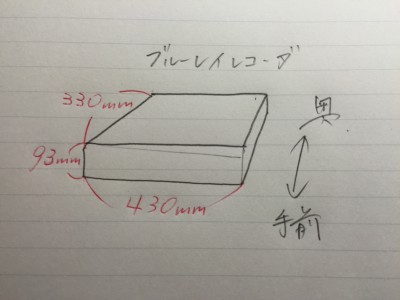 ブルーレイレコーダ
330mm
奥
93mm
430mm
手前